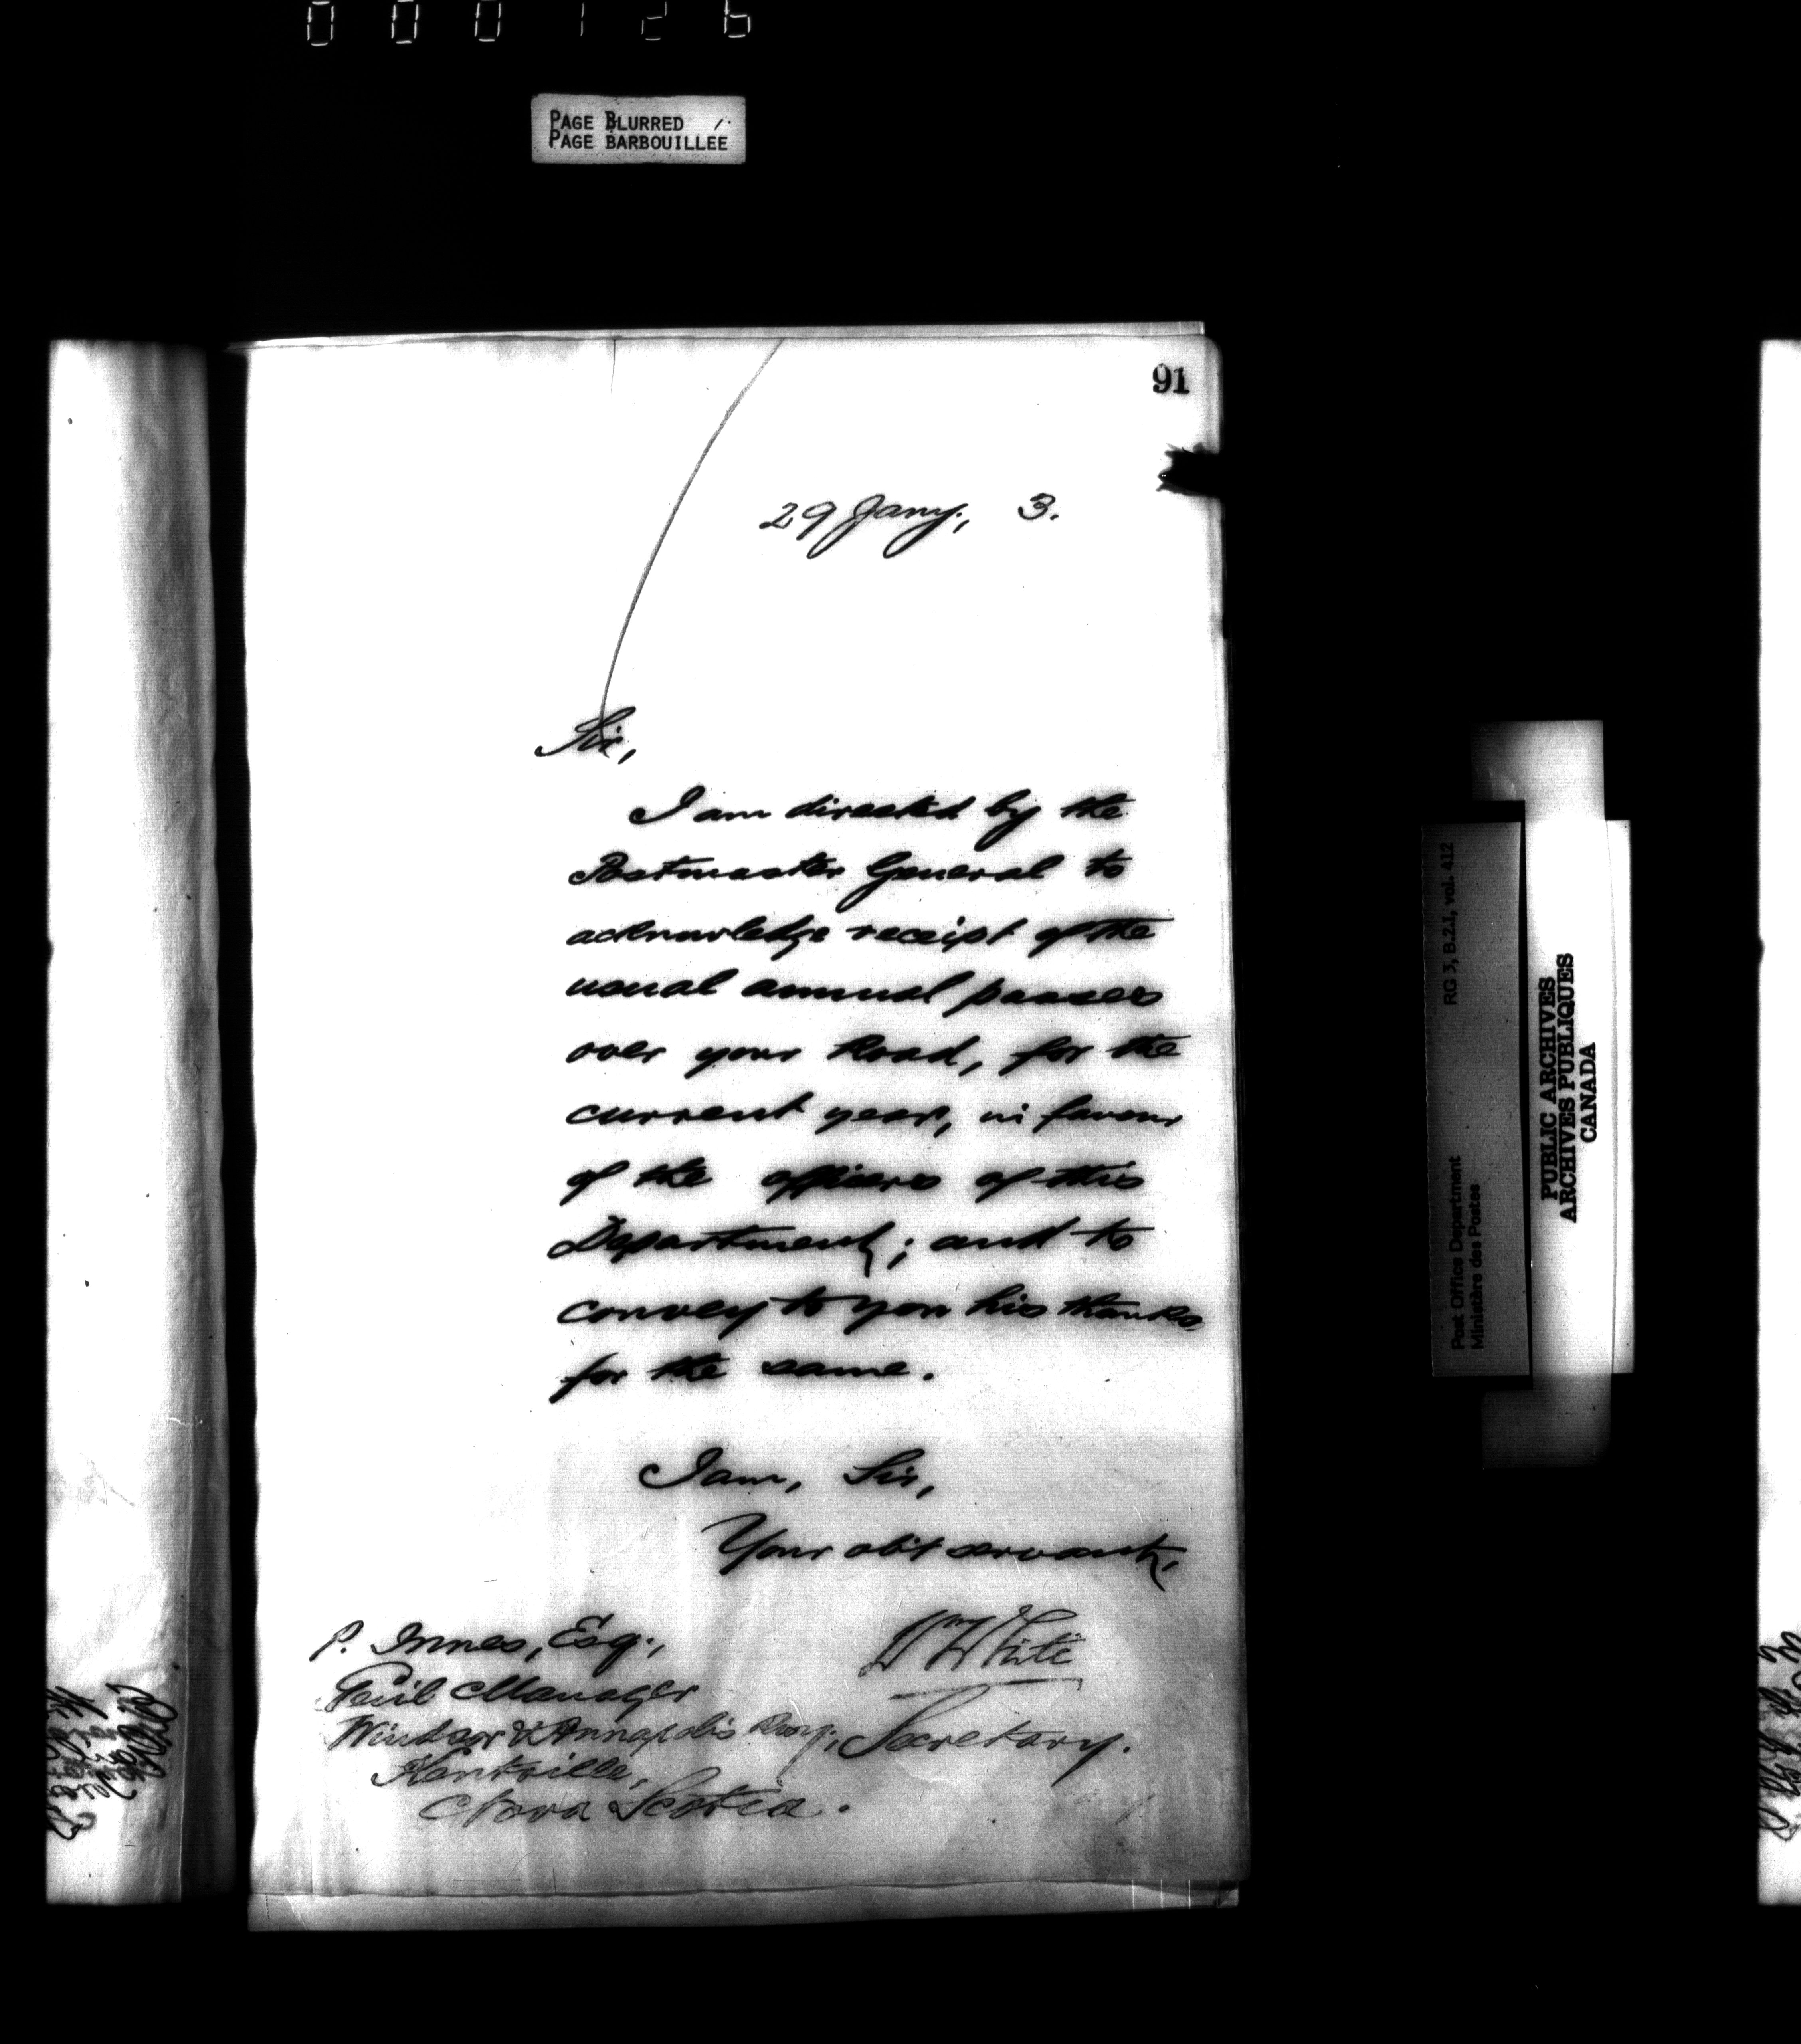 000126
PAGE BLURRED
PAGE BARBOUILLÉE
91
29 Jany., 3.
Sir,
I am directed by the
Postmaster General to
acknowledge receipt of the
usual annual passes
over your Road, for the
current year, in favour
of the officers of this
Department; and to
convey to you his thanks
for the same.
I am, Sir,
Your obt servant,
Wm White
Secretary.
P. Innes, Esq.,
Genl Manager
Windsor & Annapolis Rwy.,
Kentville,
Nova Scotia.
RG 3, B.2.1, vol. 412
Post Office Department
Ministère des Postes
PUBLIC ARCHIVES
ARCHIVES PUBLIQUES
CANADA